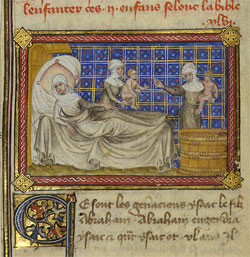 enfanter ces .ij. enfans selonc la bible
Ce sont les genacions ysaac le filz
Abraham. Abraham engendra
ysaac et qnt ysaac ot .xl. ans il